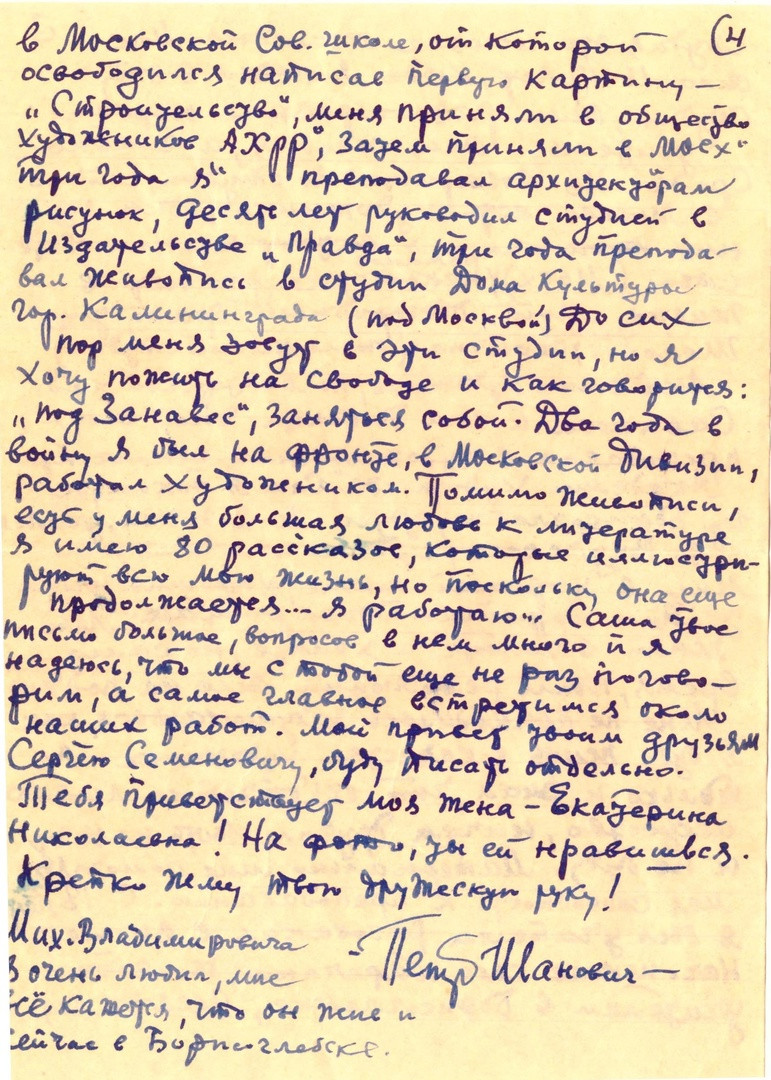 (4
в Московской Сов. школе, от которой
освободился написав первую картину —
„Строительство“, меня приняли в общество
художников АХРР“, Затем приняли в МОСХ“
три года я“ преподавал архитекторам
рисунок, десять лет руководил студией в
Издательстве „Правда“, три года препода-
вал живопись в студии Дома Культуры
гор. Калининграда (под Москвой) До сих
пор меня зовут в эти студии, но я
хочу пожить на свободе и как говорится:
„под Занавес“, заняться собой. Два года в
войну я был на фронте, в Московской дивизии,
работал художником. Помимо живописи,
есть у меня большая любовь к литературе
я имею 80 рассказов, которые иллюстри-
руют всю мою жизнь, но поскольку она еще
продолжается... я работаю... Саша твое
письмо большое, вопросов в нем много и я
надеюсь, что мы с тобой еще не раз погово-
рим, а самое главное встретимся около
наших работ. Мой привет твоим друзьям
Сергею Семеновичу, буду писать отдельно.
Тебя приветствует моя жена – Екатерина
Николаевна! На фото, ты ей нравишься.
Крепко жму твою дружескую руку!
Мих. Владимировича
– Петр Иванович —
я очень любил, мне
всё кажется, что он жив и
сейчас в Борисоглебске.